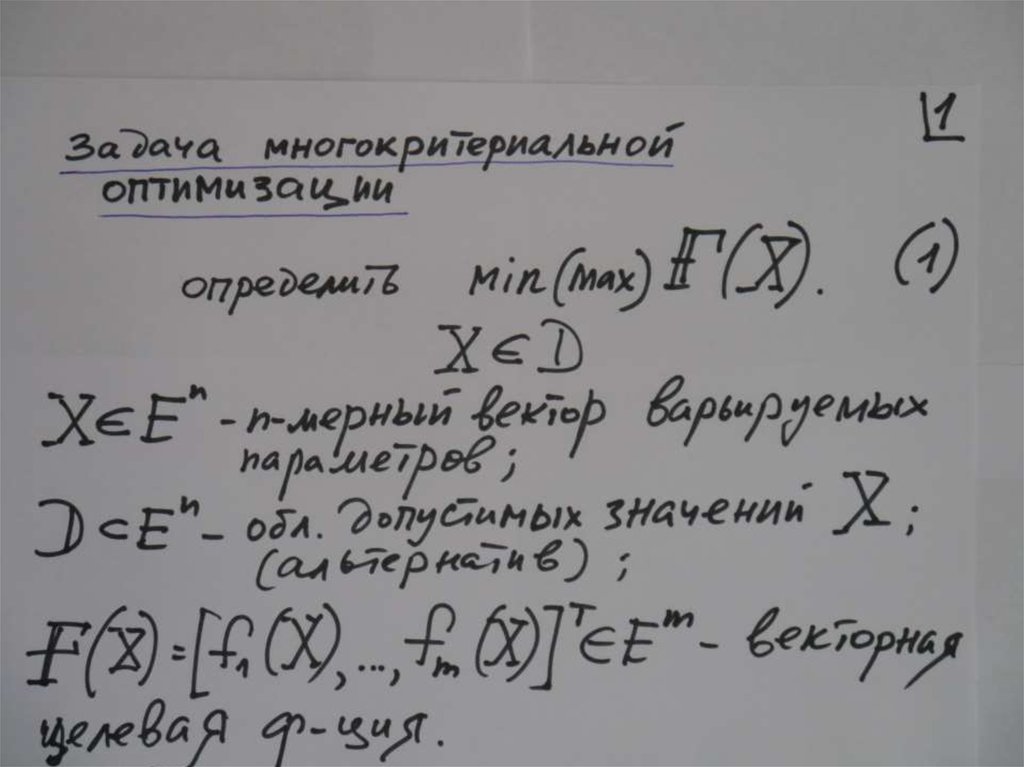 1
Задача многокритериальной
оптимизации
определить min(max) F(X). (1)
X∈D
X∈Eⁿ - n-мерный вектор варьируемых
параметров;
D⊂Eⁿ - обл. допустимых значений X;
(альтернатив);
F(X)=[f₁(X),...,fₘ(X)]ᵀ∈Eᵐ - векторная
целевая ф-ция.